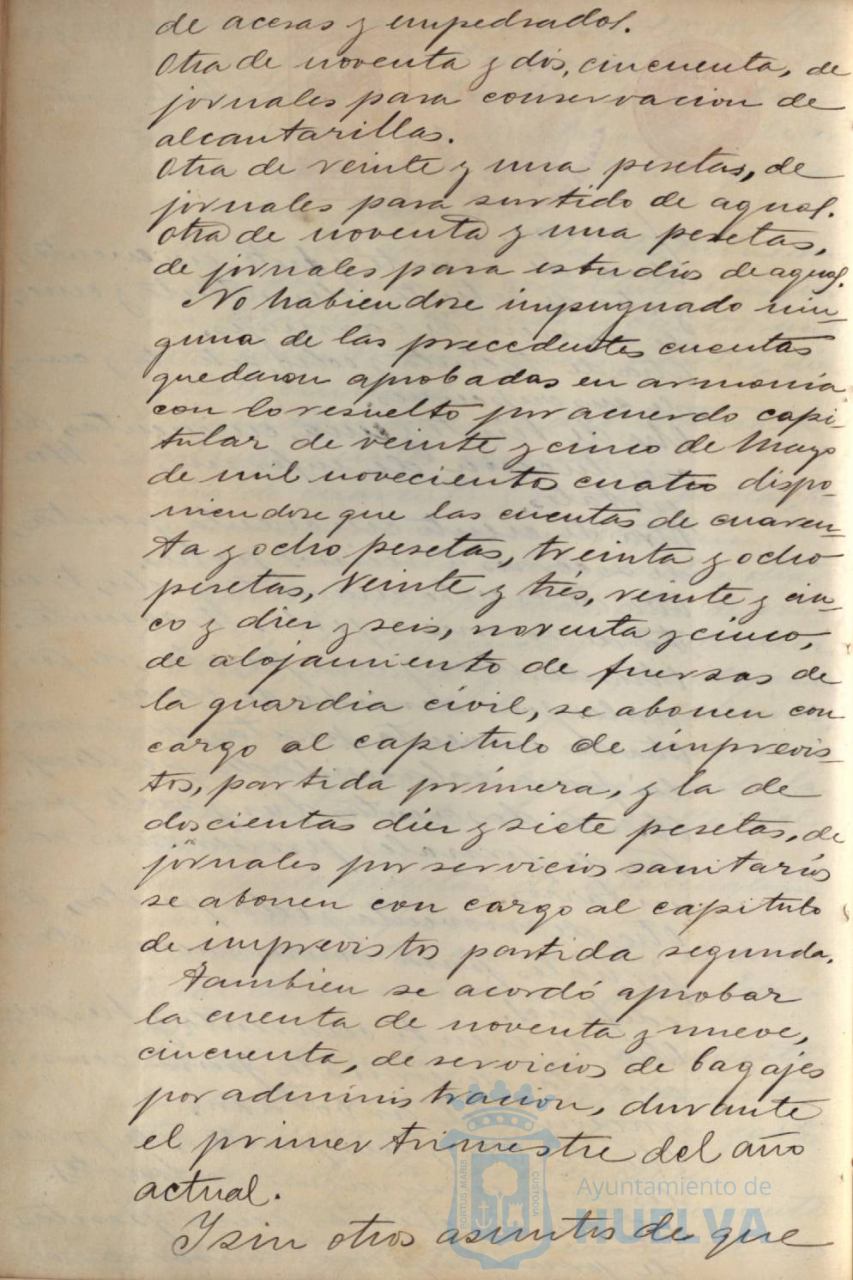 de aceras y empedrados.
Otra de noventa y dos, cincuenta, de
jornales para conservacion de
alcantarillas.
Otra de veinte y una pesetas, de
jornales para surtido de aguas.
Otra de noventa y una pesetas,
de jornales para estudios de aguas.
No habiendose impugnado nin-
guna de las precedentes cuentas
quedaron aprobadas en armonia
con lo resuelto por acuerdo capi-
tular de veinte y cinco de Mayo
de mil novecientos cuatro dispo-
niendose que las cuentas de cuaren-
ta y ocho pesetas, treinta y ocho
pesetas, veinte y trés, veinte y cin-
co y diez y seis, noventa y cinco,
de alojamiento de fuersas de
la guardia civil, se abonen con
cargo al capitulo de imprevis-
tos, partida primera, y la de
doscientas diez y siete pesetas, de
jornales por servicios sanitarios
se abonen con cargo al capitulo
de imprevistos partida segunda.
Tambien se acordó aprobar
la cuenta de noventa y nueve,
cincuenta, de servicios de bagajes
por administracion, durante
el primer trimestre del año
actual.
Y sin otros asuntos de que
PORTUS MARIS
CUSTODIA
Ayuntamiento de
HUELVA